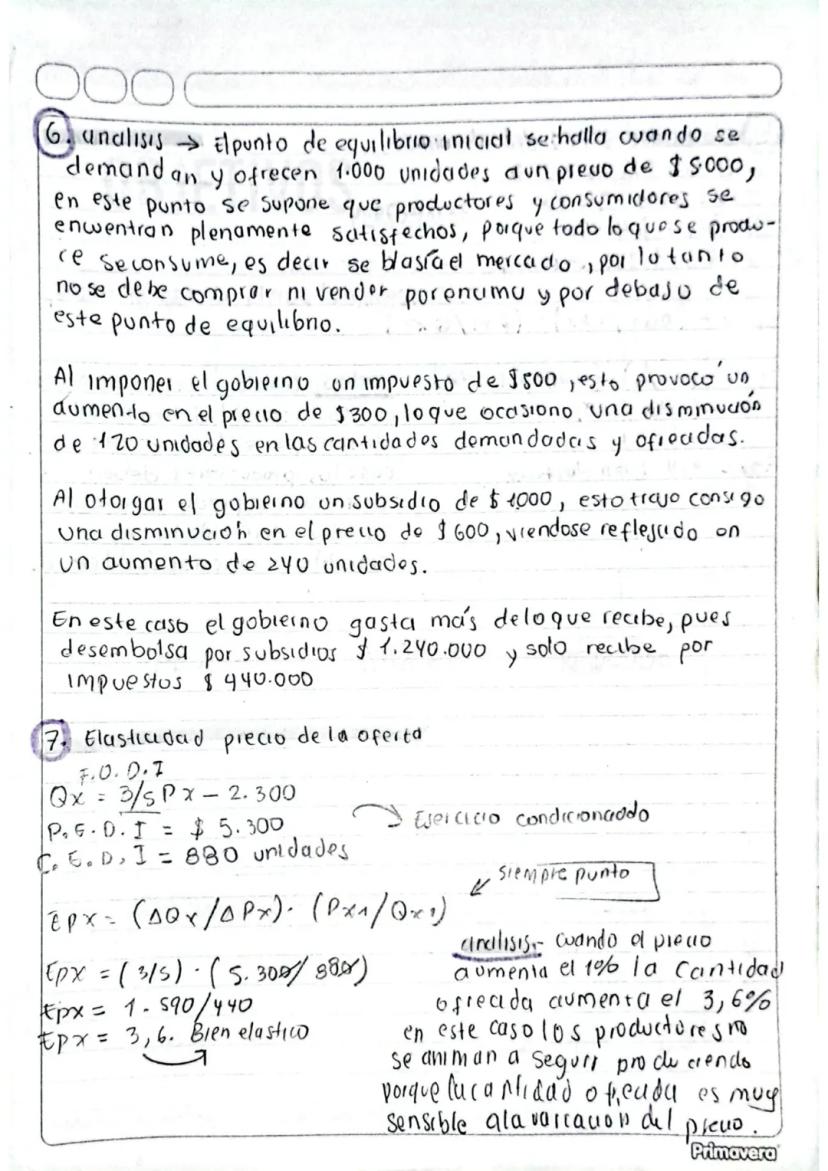 6. analisis → El punto de equilibrio inicial se halla cuando se
demandan y ofrecen 1.000 unidades a un precio de $ 5000,
en este punto se supone que productores y consumidores se
encuentran plenamente satisfechos, porque todo lo que se produ-
ce se consume, es decir se blasía el mercado, por lo tanto
no se debe comprar ni vender por encima y por debajo de
este punto de equilibrio.
Al imponer el gobierno un impuesto de $500, esto provocó un
aumento en el precio de $300, lo que ocasiono una disminución
de 120 unidades en las cantidades demandadas y ofrecidas.
Al otorgar el gobierno un subsidio de $ 1000, esto trajo consigo
una disminución en el precio de $ 600, viendose reflejado en
un aumento de 240 unidades.
En este caso el gobierno gasta más de lo que recibe, pues
desembolsa por subsidios $ 1.240.000 y solo recibe por
impuestos $ 440.000
7. Elasticidad precio de la oferta
F.O.D.I
Qx = 3/5 Px - 2.300
P.E.D.I = $ 5.300
C.E.D.I = 880 unidades
Ejercicio condicionado
Siempre punto
Epx = (ΔQx/ΔPx) · (Px1/Qx1)
Epx = (3/5) · (5.300/880)
Epx = 1.590/440
Epx = 3,6. Bien elastico
analisis.- Cuando el precio
aumenta el 1% la cantidad
ofrecida aumenta el 3,6%
en este caso los productores no
se animan a seguir produciendo
porque la cantidad ofrecida es muy
sensible a la variacion del precio.
Primavera